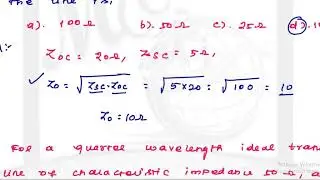 the line is.
a). 100Ω b). 50Ω c). 25Ω d).
Z_OC = 20Ω, Z_SC = 5Ω,
✓ Z_0 = √(Z_SC·Z_OC) = √(5×20) = √100 = 10
Z_0 = 10Ω
For a quarter wavelength ideal
line of characteristic impedance 50Ω, a